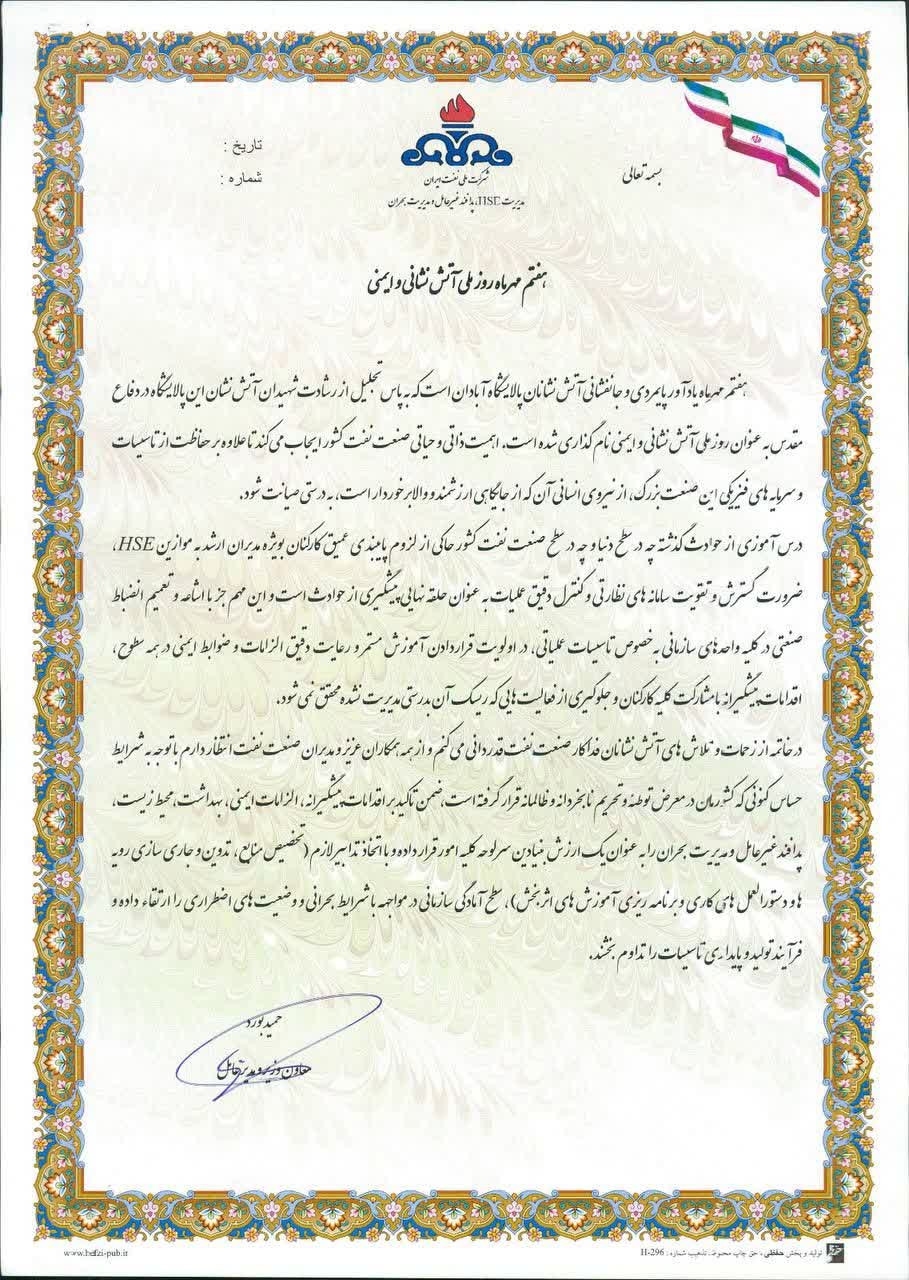 بسمه تعالی
تاریخ :
شماره :
شرکت ملی نفت ایران
مدیریت HSE، پدافند غیرعامل و مدیریت بحران
هفتم مهرماه روز ملی آتش نشانی و ایمنی
هفتم مهرماه یادآور پایمردی و جانفشانی آتش نشانان پالایشگاه آبادان است که به پاس تجلیل از رشادت شهیدان آتش نشان این پالایشگاه در دفاع
مقدس به عنوان روز ملی آتش نشانی و ایمنی نام گذاری شده است. اهمیت ذاتی و حیاتی صنعت نفت کشور ایجاب می کند تا علاوه بر حفاظت از تاسیسات
و سرمایه های فیزیکی این صنعت بزرگ، از نیروی انسانی آن که از جایگاهی ارزشمند و والا برخوردار است، به درستی صیانت شود.
درس آموزی از حوادث گذشته چه در سطح دنیا و چه در سطح صنعت نفت کشور حاکی از لزوم پایبندی عمیق کارکنان بویژه مدیران ارشد به موازین HSE،
ضرورت گسترش و تقویت سامانه های نظارتی و کنترل دقیق عملیات به عنوان حلقه نهایی پیشگیری از حوادث است و این مهم جز با اشاعه و تعمیم انضباط
صنعتی در کلیه واحدهای سازمانی به خصوص تاسیسات عملیاتی، در اولویت قراردادن آموزش مستمر و رعایت دقیق الزامات و ضوابط ایمنی در همه سطوح،
اقدامات پیشگیرانه با مشارکت کلیه کارکنان و جلوگیری از فعالیت هایی که ریسک آن بدرستی مدیریت نشده محقق نمی شود.
در خاتمه از زحمات و تلاش های آتش نشانان فداکار صنعت نفت قدردانی می کنم و از همه همکاران عزیز و مدیران صنعت نفت انتظار دارم با توجه به شرایط
حساس کنونی که کشورمان در معرض توطئه و تحریم نابخردانه و ظالمانه قرار گرفته است، ضمن تاکید بر اقدامات پیشگیرانه، الزامات ایمنی، بهداشت، محیط زیست،
پدافند غیرعامل و مدیریت بحران را به عنوان یک ارزش بنیادین سرلوحه کلیه امور قرار داده و با اتخاذ تدابیر لازم (تخصیص منابع، تدوین و جاری سازی رویه
ها و دستورالعمل های کاری و برنامه ریزی آموزش های اثربخش)، سطح آمادگی سازمانی در مواجهه با شرایط بحرانی و وضعیت های اضطراری را ارتقاء داده و
فرآیند تولید و پایداری تاسیسات را تداوم بخشند.
حمید بورد
معاون وزیر و مدیرعامل
تولید و پخش حفظی ، حق چاپ محفوظ. تذهیب شماره : H-296
www.hefzi-pub.ir